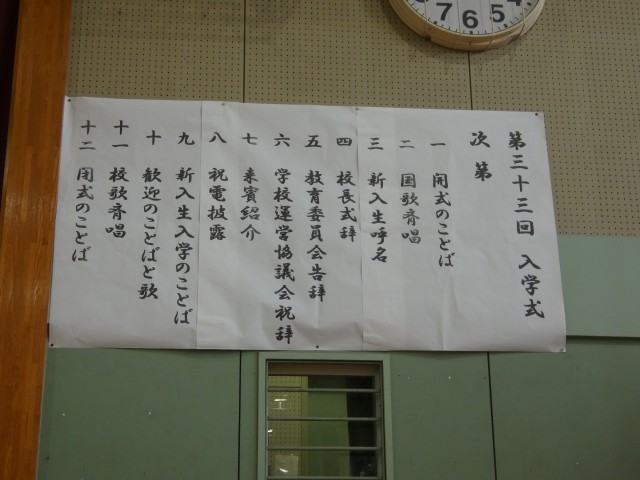 第三十三回 入学式
次第
一 開式のことば
二 国歌斉唱
三 新入生呼名
四 校長式辞
五 教育委員会告辞
六 学校運営協議会祝辞
七 来賓紹介
八 祝電披露
九 新入生入学のことば
十 歓迎のことばと歌
十一 校歌斉唱
十二 閉式のことば
8 7 6 5 4